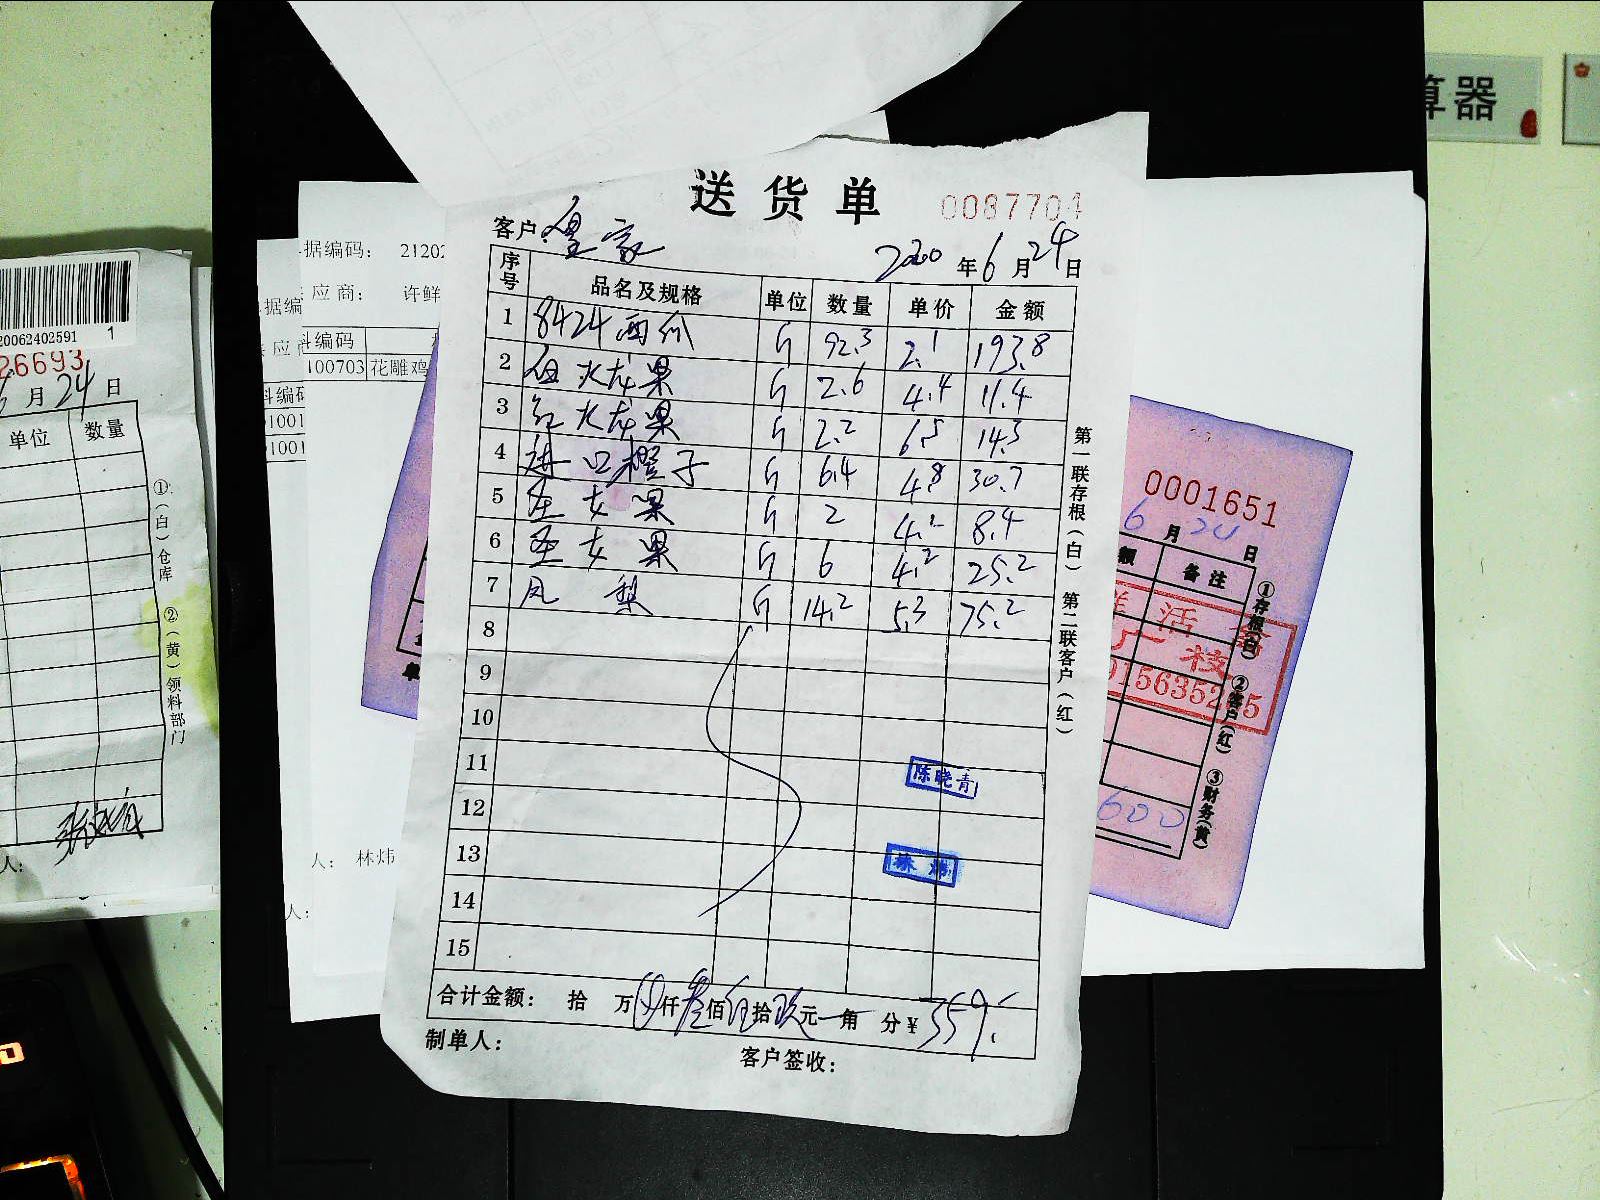 算器
送货单
0087704
客户：皇家
2020年6月24日
序号 品名及规格 单位 数量 单价 金额
1 8424西瓜 斤 92.3 2.1 193.8
2 白火龙果 斤 2.6 4.4 11.4
3 红火龙果 斤 2.2 6.5 14.3
4 进口橙子 斤 6.4 4.8 30.7
5 圣女果 斤 2 4.2 8.4
6 圣女果 斤 6 4.2 25.2
7 凤梨 斤 14.2 5.3 75.2
8
9
10
11
12
13
14
15
陈晓青
林炜
合计金额： 拾 万 仟叁佰伍拾玖元一角 分¥359.
制单人：
客户签收：
第一联存根（白） 第二联客户（红）
据编码： 21202
应商： 许鲜
据编
料编码
100703 花雕鸡
应商
料编码
01001
01001
人： 林炜
人：
20062402591 1
26693
6月24日
单位 数量
①（白）仓库 ②（黄）领料部门
人：
0001651
6月24日
额 备注
活
广 枝
015635
600
①存根（白） ②客户（红） ③财务（黄）